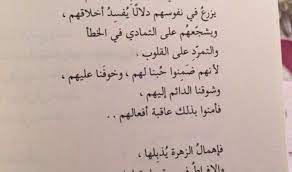 يزرعُ في نفوسهم دلالًا يُفسِدُ أخلاقهم ،
ويشجّعهُم على التمادي في الخطأ
والتمرّد على القلوب .
لأنهم ضَمِنوا حُبنا لهم ، وخوفَنا عليهم ،
وشوقنا الدائم إليهم ،
فأمنوا بذلك عاقبة أفعالهم ..
فإهمالُ الزهرة يُذبِلها ،